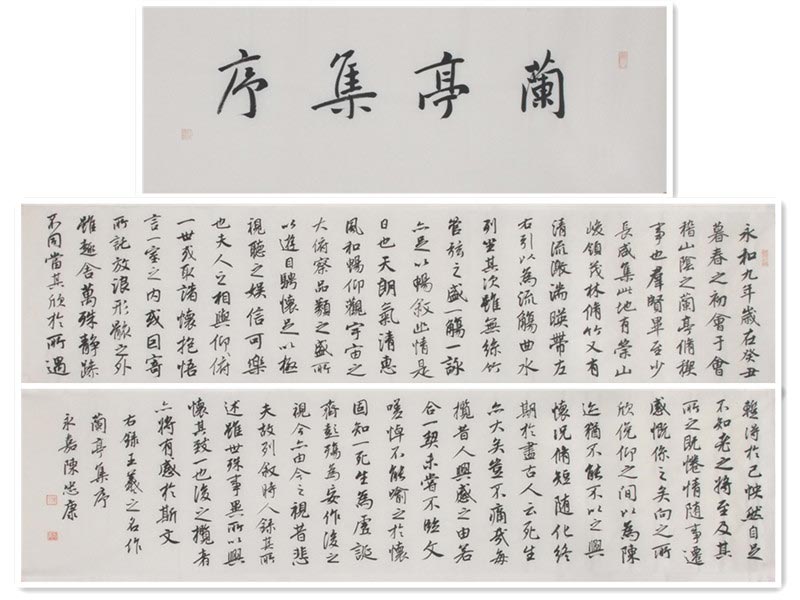 蘭亭集序
永和九年歲在癸丑
暮春之初會于會
稽山陰之蘭亭脩禊
事也羣賢畢至少
長咸集此地有崇山
峻領茂林脩竹又有
清流激湍暎帶左
右引以為流觴曲水
列坐其次雖無絲竹
管弦之盛一觴一詠
亦足以暢敘幽情是
日也天朗氣清惠
風和暢仰觀宇宙之
大俯察品類之盛所
以遊目騁懷足以極
視聽之娛信可樂
也夫人之相與仰俯
一世或取諸懷抱悟
言一室之內或因寄
所託放浪形骸之外
雖趣舍萬殊靜躁
不同當其欣於所遇
暫得於己怏然自足
不知老之將至及其
所之既惓情隨事遷
感慨係之矣向之所
欣俛仰之間以為陳
迹猶不能不以之興
懷況脩短隨化終
期於盡古人云死生
亦大矣豈不痛哉每
攬昔人興感之由若
合一契未嘗不臨文
嗟悼不能喻之於懷
固知一死生為虛誕
齊彭殤為妄作後之
視今亦由今之視昔悲
夫故列敘時人錄其所
述雖世殊事異所以興
懷其致一也後之攬者
亦將有感於斯文
右錄王羲之名作
蘭亭集序
永嘉陳忠康